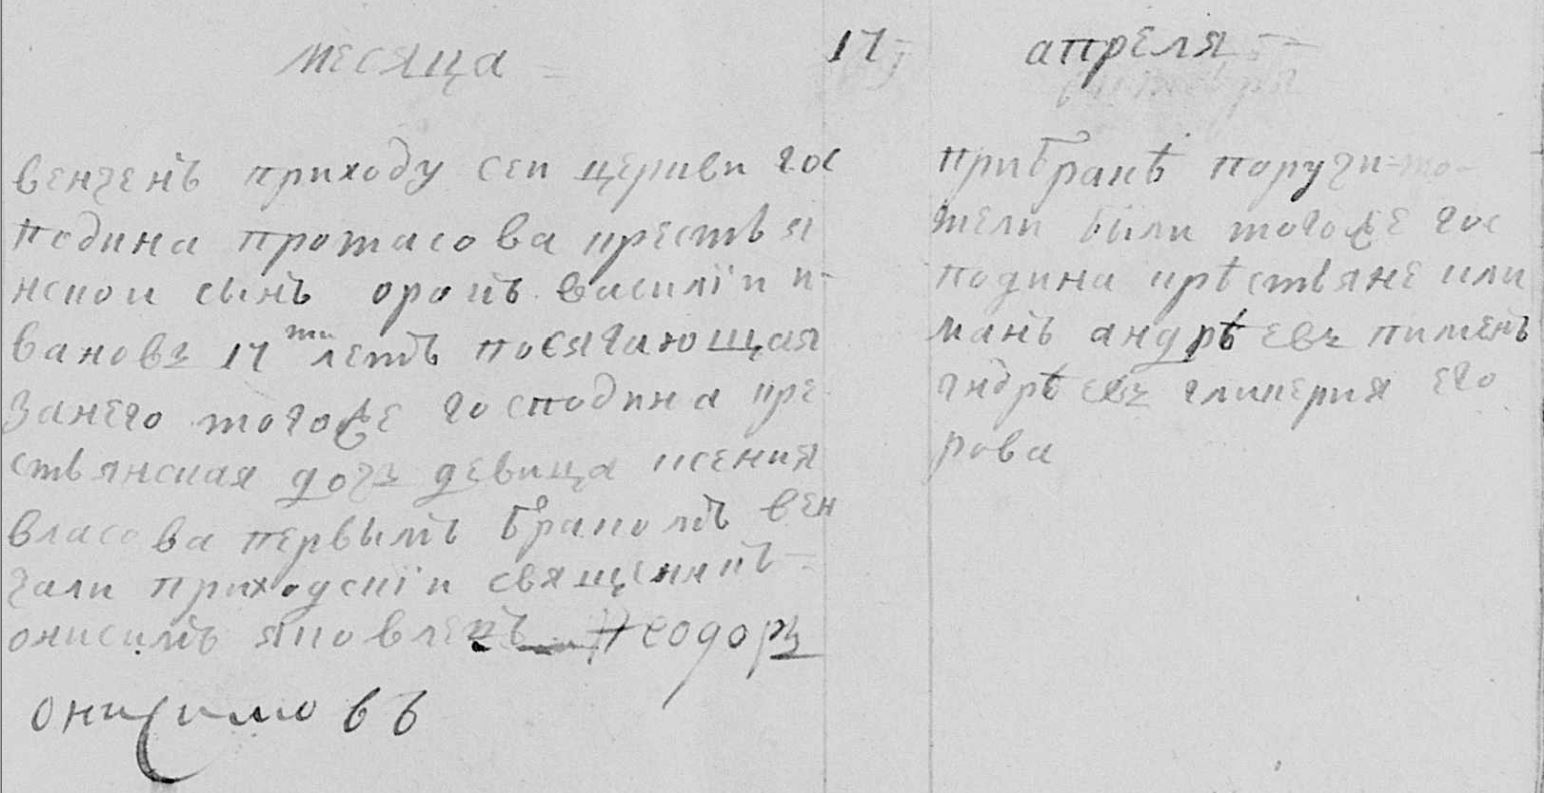 месяца 17 апреля
венченъ приходу сеи церкви гос
подина протасова крестья
нскои сынъ Василіи и-
вановъ 17 ти летъ посягающая
занего тогоже господина кре
стьянская дочъ девица ксения
власова первымъ бракомъ вен
чали приходскіи священникъ
онисимъ яковлевъ Ѳеодоръ
онисимовъ
прибракѣ поручи-
тели были тогоже гос
подина крѣстьяне кли
манъ андрѣевъ пименъ
андрѣевъ гликерия его
рова